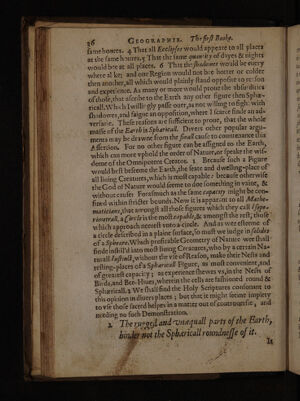 36 GEOGRAPHIE. The first Booke.
same houres. 4 That all Ecclipses would appeare to all places
at the same houres, 5 That the same quantity of dayes & nights
would bee at all places. 6 That the shadowes would be every
where alike; and one Region would not bee hotter or colder
then another, all which would plainly stand opposite to reason
and experience. As many or more would prove the absurdities
of those, that ascribe to the Earth any other figure then Sphæ-
ricall. Which I willingly passe over, as not willing to fight with
shadowes, and faigne an opposition, where I scarce finde an ad-
versarie. These reasons are sufficient to prove, that the whole
masse of the Earth is Sphæricall. Divers other popular argu-
ments may be drawne from the finall cause to countenance this
Assertion. For no other figure can be assigned to the Earth,
which can more uphold the order of Nature, or speake the wis-
dome of the Omnipotent Creator. 1 Because such a Figure
would best beseeme the Earth, the seate and dwelling-place of
all living Creatures, which is most capable: because otherwise
the God of Nature would seeme to doe something in vaine, &
without cause: Forasmuch as the same capacity might be con-
fined within stricter bounds. Now it is apparent to all Mathe-
maticians, that amongst all those figures which they call Isope-
rimetrall, a Circle is the most capable, & amongst the rest, those
which approach neerest unto a circle. And as wee esteeme of
a circle described in a plaine surface, so must we judge in solides
of a Sphæare. Which profitable Geometry of Nature wee shall
finde instill'd into most living Creatures, who by a certain Na-
turall Instinct, without the vse of Reason, make their Nests and
resting-places of a Sphæricall Figure, as most convenient, and
of greatest capacity; as experience shewes vs, in the Nests of
Birds, and Bee-Hiues, wherein the cells are fashioned round &
Sphæricall. 2 We shall find the Holy Scriptures consonant to
this opinion in divers places; but that it might seeme impiety
to vse those sacred helpes in a matter out of controversie, and
needing no such Demonstration.
2 The rugged and vnequall parts of the Earth,
hinder not the Sphæricall roundnesse of it.